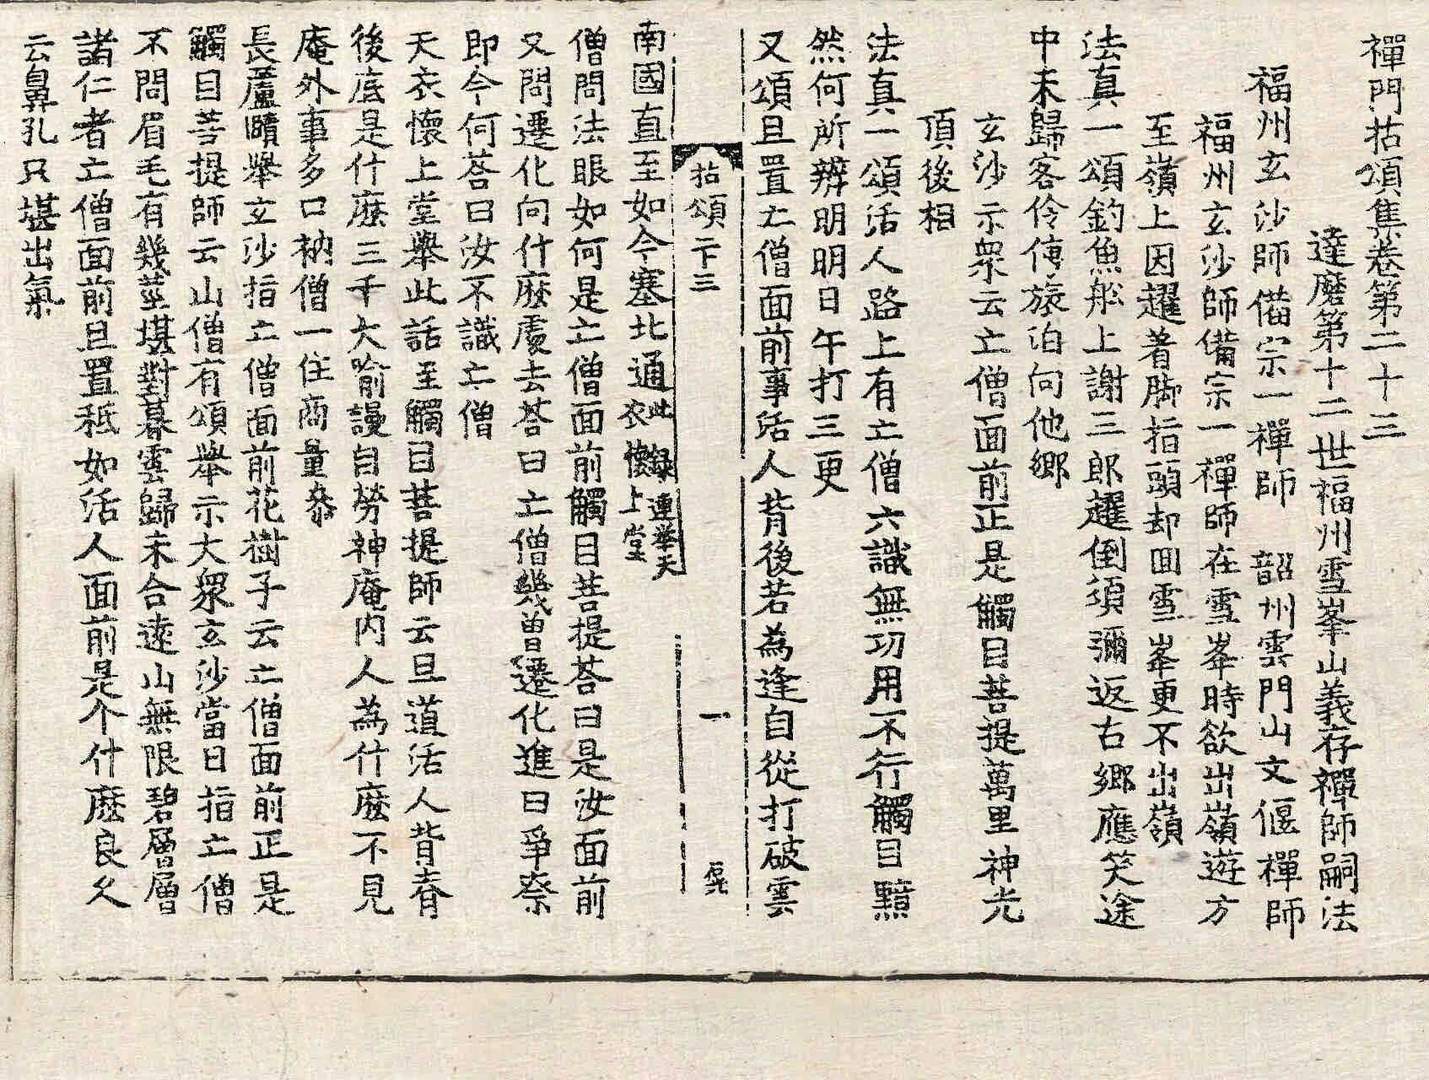 禪門拈頌集卷第二十三
達磨第十二世福州雪峯山義存禪師嗣法
福州玄沙師備宗一禪師　韶州雲門山文偃禪師
福州玄沙師備宗一禪師在雪峯時欲出嶺遊方
至嶺上因趯著脚指頭却回雪峯更不出嶺
法真一頌釣魚舩上謝三郎趯倒須彌返古鄉應笑途
中未歸客伶俜旅泊向他鄉
玄沙示衆云亡僧面前正是觸目菩提萬里神光
頂後相
法真一頌活人路上有亡僧六識無功用不行觸目黯
然何所辨明明日午打三更
又頌且置亡僧面前事活人背後若為逢自從打破雲
拈頌 二下三
一
南國直至如今塞北通此錄連擧天
衣懷上堂
僧問法眼如何是亡僧面前觸目菩提荅曰是汝面前
又問遷化向什麽處去荅曰亡僧幾曾遷化進曰爭柰
即今何荅曰汝不識亡僧
天衣懷上堂舉此話至觸目菩提師云且道活人背脊
後底是什麽三千大喻謾自勞神庵內人為什麽不見
庵外事多口衲僧一任商量叅
長蘆賾舉玄沙指亡僧面前花樹子云亡僧面前正是
觸目菩提師云山僧有頌舉示大衆玄沙當日指亡僧
不問眉毛有幾莖堪對暮雲歸未合遠山無限碧層層
諸仁者亡僧面前且置秪如活人面前是个什麽良久
云鼻孔只堪出氣